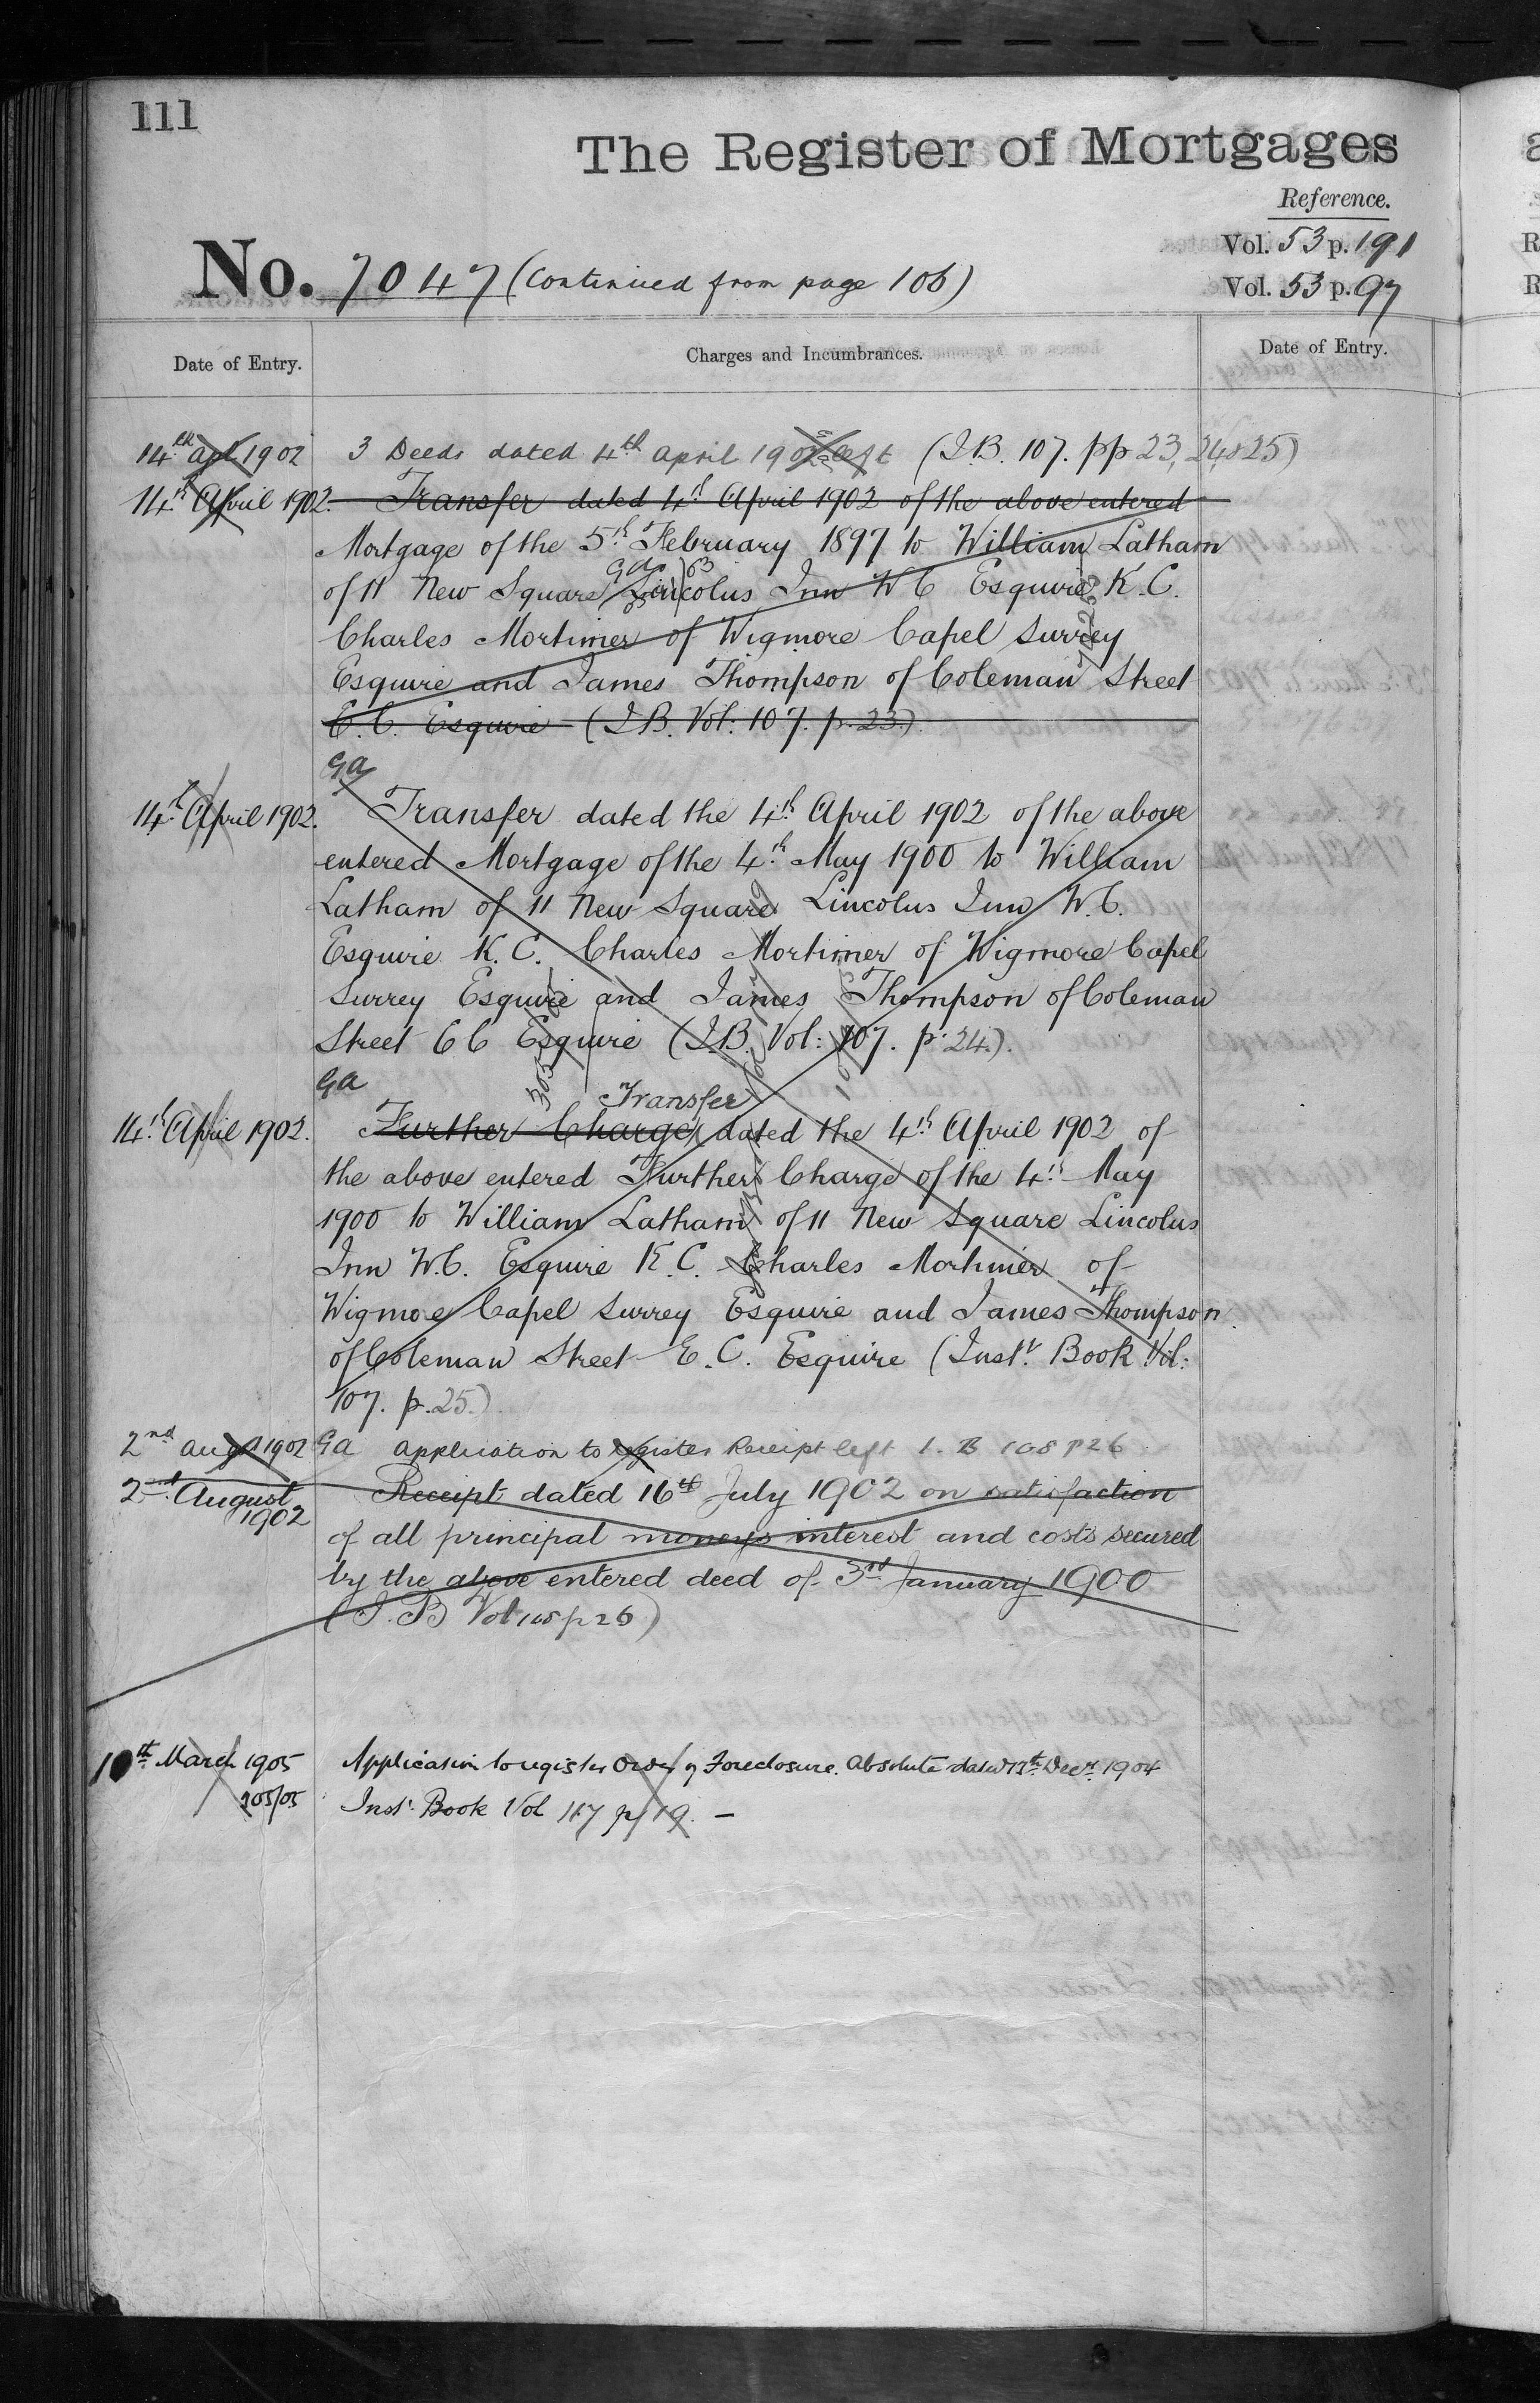 111
The Register of Mortgages
Reference.
Vol. 53 p. 191
No. 7047 (Continued from page 106)
Vol. 53 p. 97
Date of Entry.
Charges and Incumbrances.
Date of Entry.
14th Apl 1902 3 Deeds dated 4th April 1902 left (I.B. 107. pp 23, 24 & 25)
14th April 1902. Transfer dated 4th April 1902 of the above entered
Mortgage of the 5th February 1897 to William Latham
of 11 New Square Lincolns Inn W C Esquire K.C.
Charles Mortimer of Wigmore Capel Surrey
Esquire and James Thompson of Coleman Street
E.C. Esquire (I.B. Vol: 107. p. 23.)
GA
14th April 1902. Transfer dated the 4th April 1902 of the above
entered Mortgage of the 4th May 1900 to William
Latham of 11 New Square Lincolns Inn W.C.
Esquire K.C. Charles Mortimer of Wigmore Capel
Surrey Esquire and James Thompson of Coleman
Street E C Esquire (I.B. Vol: 107. p. 24.).
GA
Transfer
14th April 1902. Further Charge dated the 4th April 1902 of
the above entered Further Charge of the 4th May
1900 to William Latham of 11 New Square Lincolns
Inn W.C. Esquire K.C. Charles Mortimer of
Wigmore Capel Surrey Esquire and James Thompson
of Coleman Street E.C. Esquire (Inst. Book Vol:
107. p. 25.)
2nd Augt 1902 GA Application to register Receipt left I.B 108 p 26
2nd August 1902 Receipt dated 16th July 1902 on satisfaction
of all principal moneys interest and costs secured
by the above entered deed of 3rd January 1900
(I.B Vol 108 p 26)
10th March 1905 Application to register Order of Foreclosure Absolute dated 17th Decr 1904
205/05 Inst. Book Vol 117 p 19. –